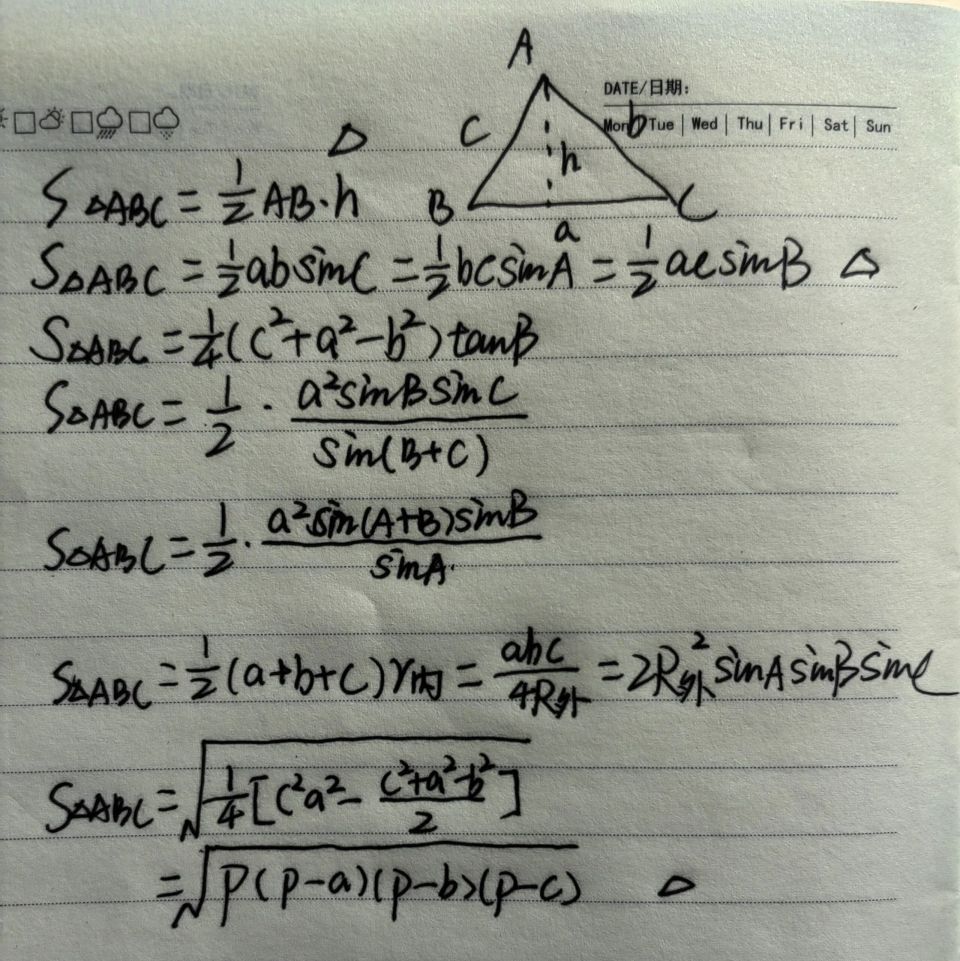 A
DATE/日期:
Mon Tue | Wed | Thu | Fri | Sat | Sun
C b
△
h
S△ABC = 1/2 AB·h
B C
a
S△ABC = 1/2 ab sinC = 1/2 bc sinA = 1/2 ac sinB △
S△ABC = 1/4 (c²+a²-b²) tanB
S△ABC = 1/2 · a² sinB sinC / sin(B+C)
S△ABC = 1/2 · a² sin(A+B) sinB / sinA
S△ABC = 1/2 (a+b+c) r内 = abc / 4R外 = 2R外² sinA sinB sinC
S△ABC = √(1/4 [c²a² - (c²+a²-b²)/2])
= √(p(p-a)(p-b)(p-c)) △